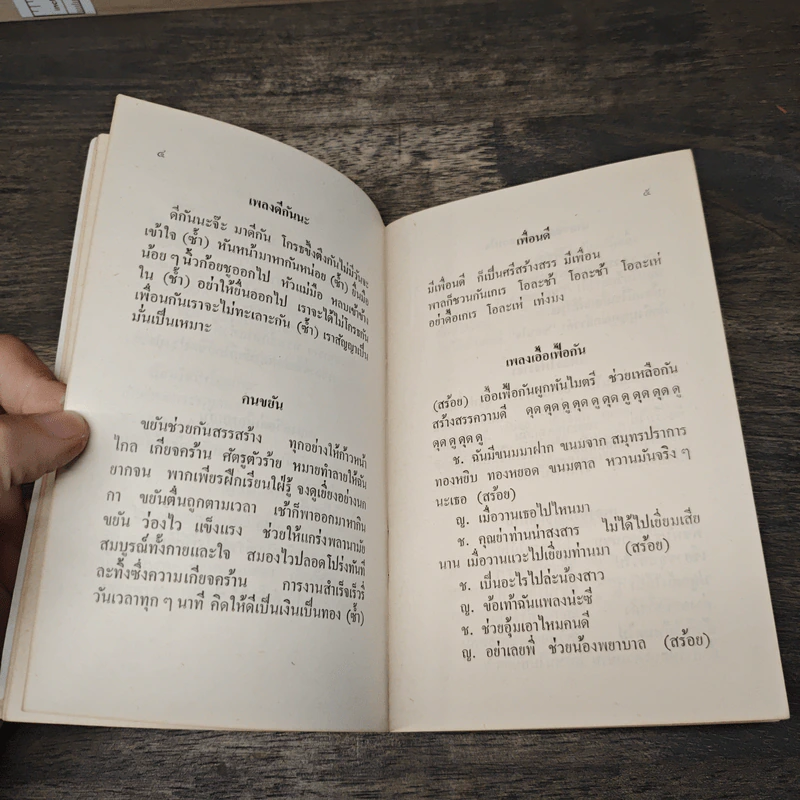 ๔
เพลงดีกันนะ
ดีกันนะจ๊ะ มาดีกัน โกรธขึ้งดึงกันไม่มีวันจะ
เข้าใจ (ซ้ำ) หันหน้ามาหากันหน่อย (ซ้ำ) ยื่นมือ
น้อย ๆ นิ้วก้อยชูออกไป หัวแม่มือ หลบเข้าข้าง
ใน (ซ้ำ) อย่าให้ยื่นออกไป เราจะได้ไม่โกรธกัน
เพื่อนกันเราจะไม่ทะเลาะกัน (ซ้ำ) เราสัญญาเป็น
มั่นเป็นเหมาะ
คนขยัน
ขยันช่วยกันสรรสร้าง ทุกอย่างให้ก้าวหน้า
ไกล เกียจคร้าน ศัตรูตัวร้าย หมายทำลายให้ฉัน
ยากจน พากเพียรฝึกเรียนใฝ่รู้ จงดูเยี่ยงอย่างนก
กา ขยันตื่นถูกตามเวลา เช้าก็พาออกมาหากิน
ขยัน ว่องไว แข็งแรง ช่วยให้แกร่งพลานามัย
สมบูรณ์ทั้งกายและใจ สมองไวปลอดโปร่งทันที
ละทิ้งซึ่งความเกียจคร้าน การงานสำเร็จเร็วรี่
วันเวลาทุก ๆ นาที คิดให้ดีเป็นเงินเป็นทอง (ซ้ำ)
๕
เพื่อนดี
มีเพื่อนดี ก็เป็นศรีสร้างสรร มีเพื่อน
พาลก็ชวนกันเกเร โอละช้า โอละช้า โอละเห่
อย่าดื้อเกเร โอละเห่ เท่งมง
เพลงเอื้อเฟื้อกัน
(สร้อย) เอื้อเฟื้อกันผูกพันไมตรี ช่วยเหลือกัน
สร้างสรรความดี ดุด ดุด ดู ดุด ดู ดุด ดู ดุด ดุด ดู
ดุด ดู ดุด ดู
ช. ฉันมีขนมมาฝาก ขนมจาก สมุทรปราการ
ทองหยิบ ทองหยอด ขนมตาล หวานมันจริง ๆ
นะเธอ (สร้อย)
ญ. เมื่อวานเธอไปไหนมา
ช. คุณย่าท่านน่าสงสาร ไม่ได้ไปเยี่ยมเสีย
นาน เมื่อวานแวะไปเยี่ยมท่านมา (สร้อย)
ช. เป็นอะไรไปล่ะน้องสาว
ญ. ข้อเท้าฉันแพลงน่ะซี
ช. ช่วยอุ้มเอาไหมคนดี
ญ. อย่าเลยพี่ ช่วยน้องพยาบาล (สร้อย)